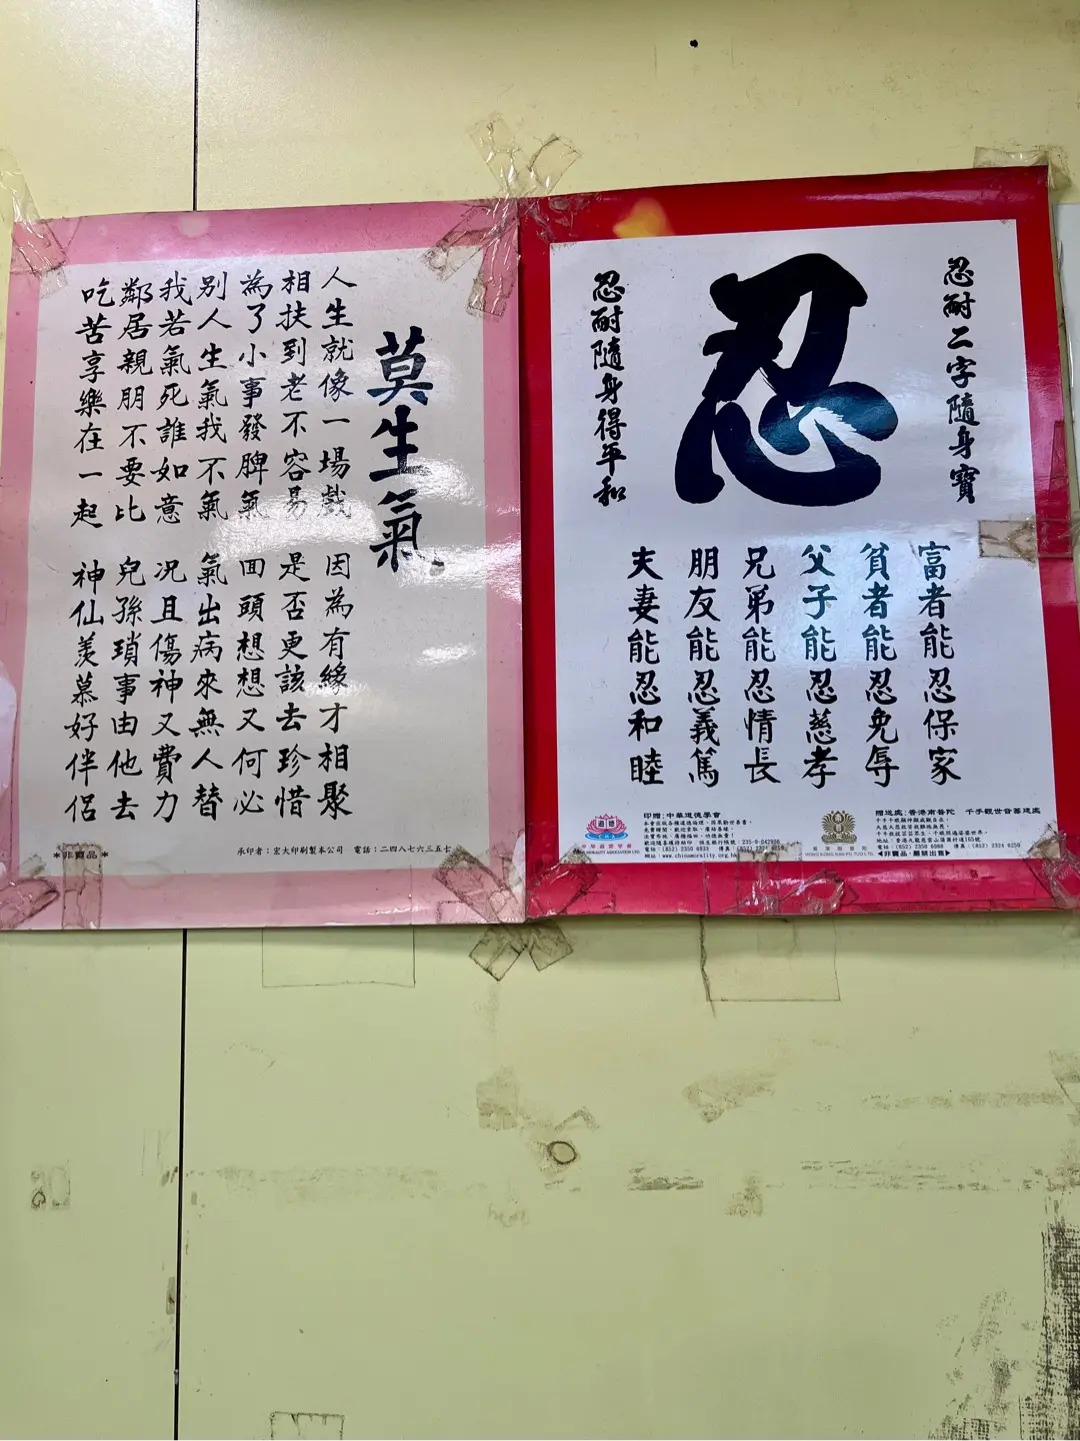 忍
忍耐二字隨身寶
忍耐隨身得平和
富者能忍保家
貧者能忍免辱
父子能忍慈孝
兄弟能忍情長
朋友能忍義篤
夫妻能忍和睦
印贈：中華道德學會
贈送處：香港南普陀 千手觀世音籌建處
◀非賣品·嚴禁出售▶
莫生氣
人生就像一場戲 因為有緣才相聚
相扶到老不容易 是否更該去珍惜
為了小事發脾氣 回頭想想又何必
別人生氣我不氣 氣出病來無人替
我若氣死誰如意 況且傷神又費力
鄰居親朋不要比 兒孫瑣事由他去
吃苦享樂在一起 神仙羨慕好伴侶
*非賣品*
承印者：宏大印刷製本公司 電話：二四八七六三五七